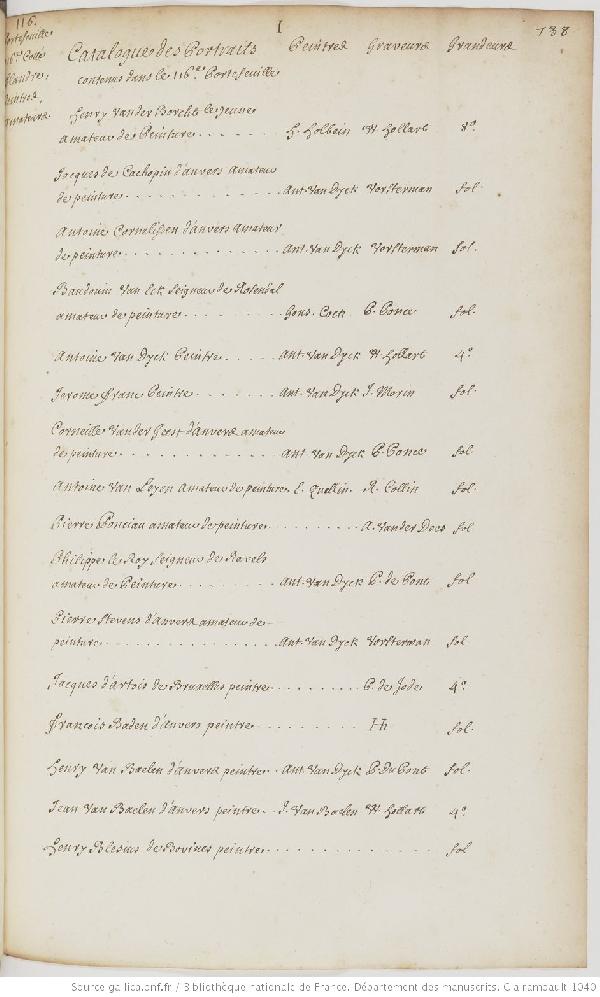 116.
Portefeuille
Flandre,
Peintres,
amateurs
I
738
Catalogue des Portraits Peintres Graveurs Grandeurs
contenus dans le 116.e Portefeuille
Henry Vander Borcht le Jeune
amateur de Peinture . . . . . . . H. Holbein W. Hollart 8º
Jacques de Cachopin d'anvers amateur
de peinture . . . . . . . . . . . . Ant. Van Dyck Vorsterman fol.
Antoine Cornelissen d'anvers amateur
de peinture . . . . . . . . . . . . Ant. Van Dyck Vorsterman fol.
Baudouin Van Eck Seigneur de Rosendal
amateur de peinture . . . . . . . Gons. Cock P. Ponce fol.
Antoine Van Dyck Peintre . . . . . Ant. Van Dyck W. Hollart 4º
Jerome Franc Peintre . . . . . . . Ant. Van Dyck J. Morin fol.
Corneille Vander Geest d'Anvers amateur
de peinture . . . . . . . . . . . . Ant Van Dyck P. Ponce fol.
Antoine Van Leyen Amateur de peinture. E. Quellin. R. Collin fol.
Pierre Ponciau amateur de peinture . . . . . . . . . A. Vander Does fol
Philippe le Roy Seigneur de Ravels
amateur de Peinture . . . . . . . Ant. Van Dyck P. de Pont fol
Pierre Stevens d'anvers amateur de
peinture . . . . . . . . . . . . . Ant. Van Dyck Vorsterman fol
Jacques d'artois de Bruxelles peintre . . . . . . . . P. de Jode 4º
François Baden d'anvers peintre . . . . . . . . . . fol.
Henry Van Baelen d'anvers peintre . . Ant. Van Dyck P. Du Pont fol.
Jean Van Baelen d'anvers peintre . . J. Van Baelen W. Hollart 4º
Henry Blesius de Bovines peintre . . . . . . . . . . . . . fol
Source gallica.bnf.fr / Bibliothèque nationale de France. Département des manuscrits. Clairambault 1040